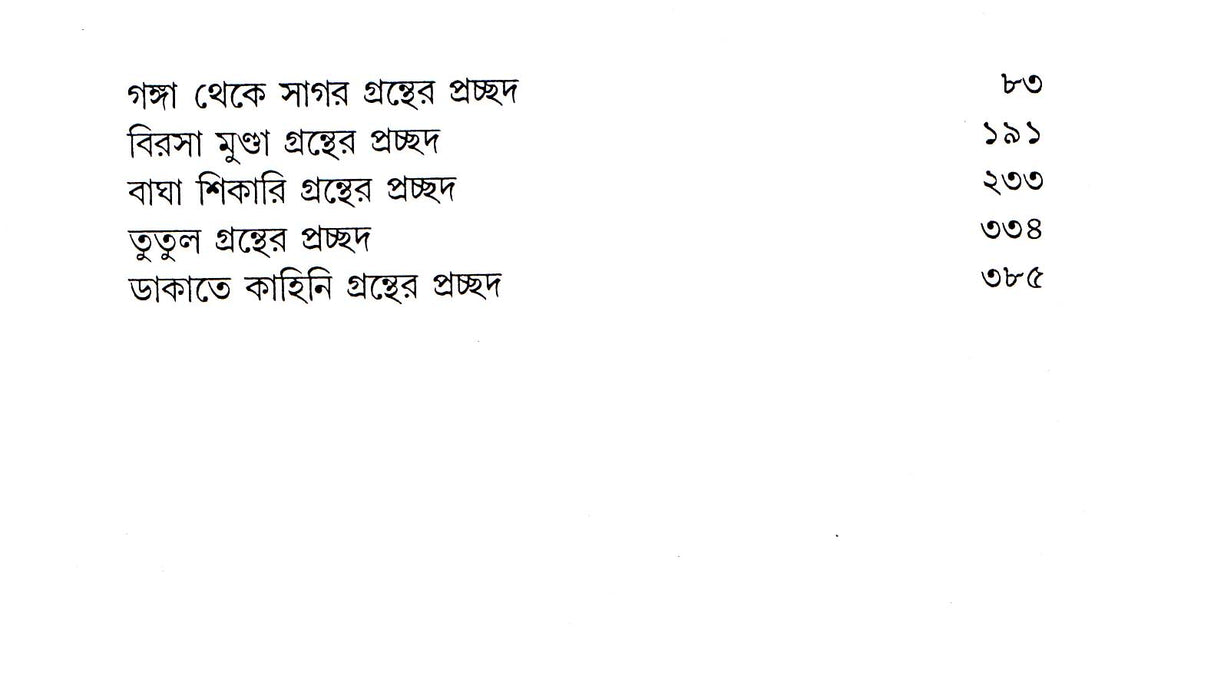 গঙ্গা থেকে সাগর গ্রন্থের প্রচ্ছদ ৮৩
বিরসা মুণ্ডা গ্রন্থের প্রচ্ছদ ১৯১
বাঘা শিকারি গ্রন্থের প্রচ্ছদ ২৩৩
তুতুল গ্রন্থের প্রচ্ছদ ৩৩৪
ডাকাতে কাহিনি গ্রন্থের প্রচ্ছদ ৩৮৫